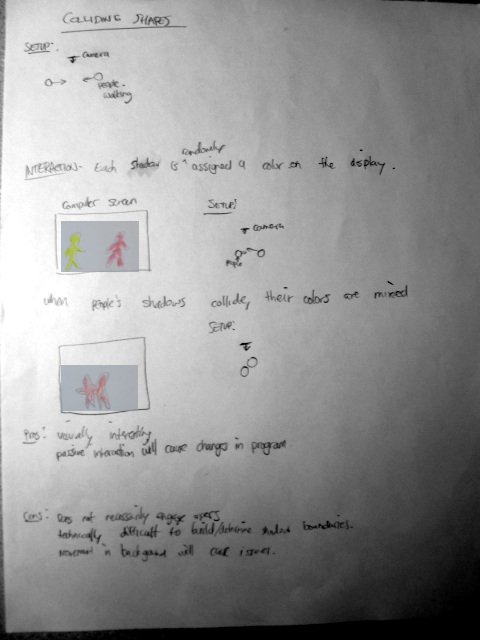 COLLIDING SHAPES
SETUP:
camera
People
walking
randomly
INTERACTION- Each shadow is ^ assigned a color on the display.
Computer screen
SETUP:
camera
People
when people's shadows collide, their colors are mixed
SETUP:
Pros: visually interesting
passive interaction will cause changes in program.
Cons: Does not necessarily engage users
technically difficult to build/determine shadow boundaries.
movement in background will cause issues.